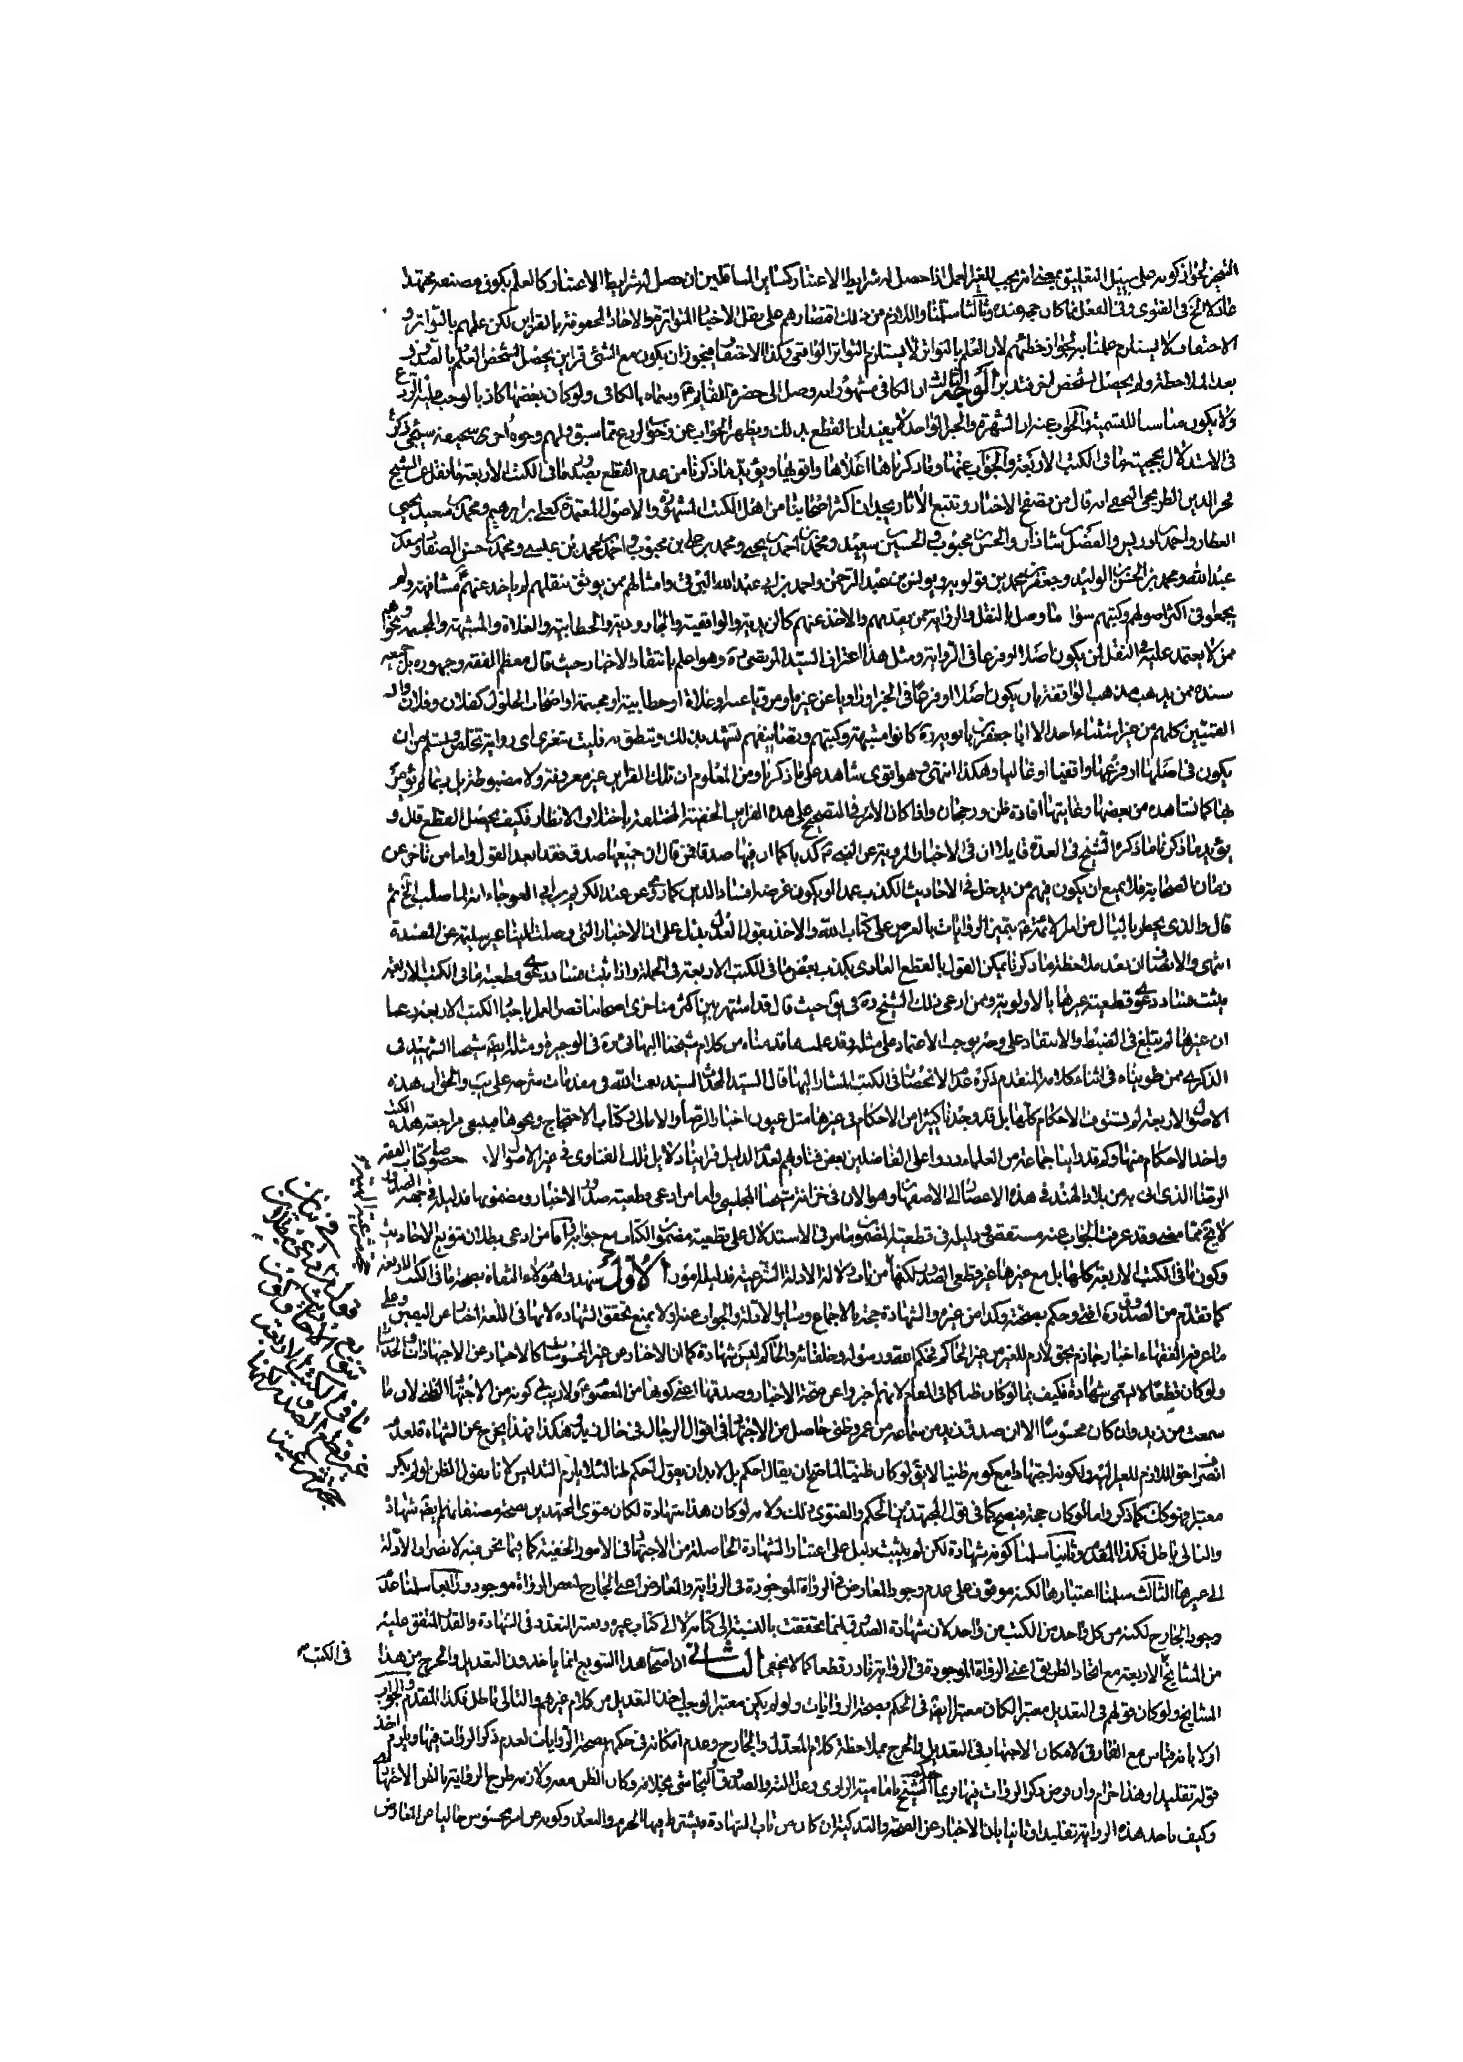 التجيز لجواز كونه على سبيل التعليق بمعنى انه يجب للغير العمل اذا حصل له شرايط الاعتبار كساير المسائل من ان حصل له شرايط الاعتبار كالعلم بكون مصنفه مجتهدا
عادلا الخ في الفتوى وفي الفعل انما كان حجة عنده وثالثا سلمنا واللازم من ذلك اقتصارهم على نقل الاخبار المتواترة والاحاد المحفوفة بالقراين لكن علمهم بالتواتر و
الاحتفاف لا يستلزم علمنا به لجواز خطائهم لان العلم بالتواتر لا يستلزم التواتر الواقعي وكذا الاحتفاف فيجوز ان يكون مع الشيء قراين يحصل لشخص العلم بالصدور
بعد الملاحظة ولم يحصل لشخص اخر فتدبر الوجه الثالث ان الكافي مشهور انه وصل الى حضرة القايم وسماه بالكافي ولو كان بعضها كاذبا لوجب عليه الردع
ولا يكون مناسبا للتسمية والجواب عنه ان الشهرة والخبر الواحد لا يفيدان القطع بذلك ويظهر الجواب عن وجوب الردع مما سبق ولهم وجوه اخرى سخيفة ستجيء ذكرها
في الاستدلال بحجية ما في الكتب الاربعة والجواب عنها وقد ذكرنا هنا اعلاها واقويها ويؤيد ما ذكرنا من عدم القطع بصدور ما في الكتب الاربعة ما نقل عن الشيخ
فخر الدين الطريحي النجفي انه قال من تصفح الاخبار وتتبع الاثار يجد ان اكثر اصحابنا من اهل الكتب المشهورة والاصول المعتمدة كعلي بن ابراهيم ومحمد بن سعيد يحيى
العطار واحمد بن ادريس والفضل بن شاذان والحسن بن محبوب والحسين بن سعيد ومحمد بن احمد بن يحيى ومحمد بن علي بن محبوب واحمد بن محمد بن عيسى ومحمد بن حسن الصفار وسعد بن
عبد الله ومحمد بن الحسن بن الوليد وجعفر بن محمد بن قولويه ويونس بن عبد الرحمن واحمد بن ابي عبد الله البرقي وامثالهم ممن يوثق بنقلهم لم ياخذ عنهم مشافهة ولم
يجعلوا في اكثر اصولهم وكتبهم سوى ما وصل بالنقل والرواية عمن بعدهم والاخذ عنهم كالزيدية والواقفية والجارودية والخطابية والغلاة والمشبهة والمجسمة ونحوهم
ممن لا يعتمد عليه في النقل لمن يكون اصلا او فرعا في الرواية ومثل هذا اعتراف السيد المرتضى ره وهو اعلم بانتقاد الاخبار حيث قال معظم الفقه وجمهوره بل جميعه
سنده ممن يذهب مذهب الواقفة بان يكون اصلا او فرعا في الخبر او راويا عن غيره او مرويا عنه او غلاة او خطابية او مجسمة او اصحاب الحلول كفلان وفلان وان
القميين كلهم من غير استثناء احدا الا ابا جعفر بن بابويه ره كانوا مشبهة وكتبهم وتصانيفهم تشهد بذلك وتنطق به فليت شعري اي رواية تخلص وتسلم من ان
يكون في اصلها او فرعها واقفيا او غاليا وهكذا انتهى وهو اقوى شاهد على ما ذكرنا ومن المعلوم ان تلك القراين غير معروفة ولا مضبوطة بل ربما لم يوثق
بها كما نشاهده من بعضها وغايتها افادة ظن ورجحان واذا كان الامر في التصحيح على هذه القراين الخفية المختلفة باختلاف الانظار فكيف يحصل القطع قلل و
يؤيد ما ذكرنا ما ذكره الشيخ في العدة قايلا ان في الاخبار المروية عن النبي كذبا كما ان فيها صدقا فمن قال ان جميعها صدق فقد ابعد القول واما من تاخر عن
زمان الصحابة فلا يمنع ان يكون فيهم من يدخل في الاحاديث الكذب عمدا ويكون غرضه افساد الدين كما روي عن عبد الكريم بن ابي العوجاء انه لما صلب الخ ثم
قال والذي يخطر بالبال من امر الائمة بتميز الروايات بالعرض على كتاب الله والاخذ بقول العدل يدل على ان الاخبار التي وصلت الينا غير سليمة عن المفسدة
انتهى والانصاف ان بعد ملاحظة ما ذكرنا يمكن القول بالقطع العادي بكذب بعض ما في الكتب الاربعة في الجملة واذا ثبت فساد دعوى قطعية ما في الكتب الاربعة
يثبت فساد دعوى قطعية غيرها بالاولوية وممن ادعى ذلك الشيخ ره في ق حيث قال قد اشتهر بين اكثر متاخري اصحابنا قصر العمل باخبار الكتب الاربعة زعما
ان غيرها لم يبلغ في الضبط والانتقاد على وجه يوجب الاعتماد على مثله وقد علمت ما قدمناه من كلام شيخنا البهائي ره في الوجيزة ومثله شيخنا الشهيد في
الذكرى ممن طويناه في اثناء كلامه المتقدم ذكره عدم الانحصار في الكتب المشار اليها قال السيد المحدث السيد نعمت الله في مقدمات شرحه على يب والحق ان هذه
الاصول الاربعة لم تستوف الاحكام كلها بل قد وجدنا كثيرا من الاحكام في غيرها مثل عيون اخبار الرضا والامالي وكتاب الاحتجاج ونحوها فينبغي مراجعة هذه الكتب
واخذ الاحكام منها وكم قد راينا جماعة من العلماء ردوا على الفاضلين بعض فتاويهم لعدم الدليل فراينا دلايل تلك الفتاوى في غير الاصول الاربعة خصوصا كتاب الفقه
الرضا الذي اتي به من بلاد الهند في هذه الاعصار الى الاصفهان وهو الان في خزانة شيخنا المجلسي واما من ادعى قطعية صدور الاخبار ومضمونها فدليله في جهة الصدور
لا يخ مما مضى وقد عرفت الجواب عنه مستقصى ودليله في قطعية المضمون ما مر في الاستدلال على قطعية مضمون الكتاب مع جوابه واما من ادعى بطلان تنويع الاحاديث
وكون ما في الكتب الاربعة كلها بل مع غيرها غير قطعي الصدور لكنها من باب دلالة الادلة الشرعية فدليله امور الاول شهد هؤلاء الثقاة بصحة ما في الكتب الاربعة
كما تقدم من الصدوق ره اخي وحكم بصحته وكذا من غيره والشهادة حجة بالاجماع وساير الادلة والجواب عنه اولا بمنع تحقق الشهادة لانها في اللغة اخبار عن اليقين وعلى
ما عرفه الفقهاء اخبار جازم بحق لازم للغير من غير الحاكم فحكم الله ورسوله وخلفائه والحاكم ليس شهادة كما ان الاخبار عن غير المحسوسات كالاخبار عن الاجتهادات والحدسيات
ولو كان قطعيا لا تسمى شهادة فكيف بما لو كان ظنيا كما في المقام لانهم اخبروا عن صحة الاخبار وصدقها اعني كونها من المعصوم ولا ريب في كونه من الاجتهاد الظني لان ما
سمعت من زيد وان كان محسوسا الا ان صدق زيد من سماعه من عمرو ظني حاصل من الاجتهاد في اقوال الرجال في حال زيد وهكذا فهذا يخرج عن الشهادة لعدم
انصراف حق اللازم للغير اليه ولكونه اجتهاديا مع كونه ظنيا لا يق لو كان ظنيا لما صح ان يقال احكم بل لا بد ان يقول احكم ظنا لئلا يلزم التدليس لانا نقول الظن لو لم يكن
معتبرا فهو كك كما ذكر واما لو كان حجة فيصح كما في قول المجتهد بينا الحكم والفتوى ذلك ولانه لو كان هذا شهادة لكان فتوى المجتهدين بصحة مصنفاتهم ايضا شهادة
والتالي باطل فكذا المقدم وثانيا سلمنا كونه شهادة لكن لم يثبت دليل على اعتبار الشهادة الحاصلة من الاجتهاد في الامور الخفية كما فيما نحن فيه لانصراف الادلة
الى غيرها الثالث سلمنا اعتبارها لكنه موقوف على عدم وجود المعارض في الرواة الموجودة في الرواية والمعارض اعني الجارح لبعض الرواة موجود ورابعا سلمنا عدم
وجود الجارح لكنه من كل واحد من الكتب من واحد لان شهادة الصدوق انما تحققت بالنسبة الى كتابه لا الى كتاب غيره ويعتبر التعدد في الشهادة والقدر المتفق عليه
من المشايخ الاربعة مع اتحاد الطريق اعني الرواة الموجودة في الرواية نادر قطعا كما لا يخفى الثاني ان اصحاب هذا التنويع انما ياخذون التعديل والجرح من هذا
المشايخ ولو كان قولهم في التعديل معتبرا لكان معتبرا ايضا في الحكم بصحة الروايات ولو لم يكن معتبرا لوجب اخذ التعديل من كلام غيرهم والتالي باطل فكذا المقدم والجواب
اولا بانه قياس مع الفارق لامكان الاجتهاد في التعديل والجرح بملاحظة كلام المعدل والجارح وعدم امكانه في حكمهم بصحة الروايات لعدم ذكر الروات فيها ويلزم اخذ
قوله تقليدا وهذا حرام وان فرض ذكر الروات فيها وربما حكم الشيخ بامامية الراوي وعدالته والصدوق والنجاشي بخلافه وكان الظن معه ولازمه طرح الرواية بالظن الاجتهادي
وكيف ناخذ هذه الرواية تقليدا وثانيا بان الاخبار عن الصحة والتزكية ان كان من باب الشهادة فيشترط فيها الجزم والتعدد وكونه عن امر محسوس خاليا عن المعارض
في الكتب